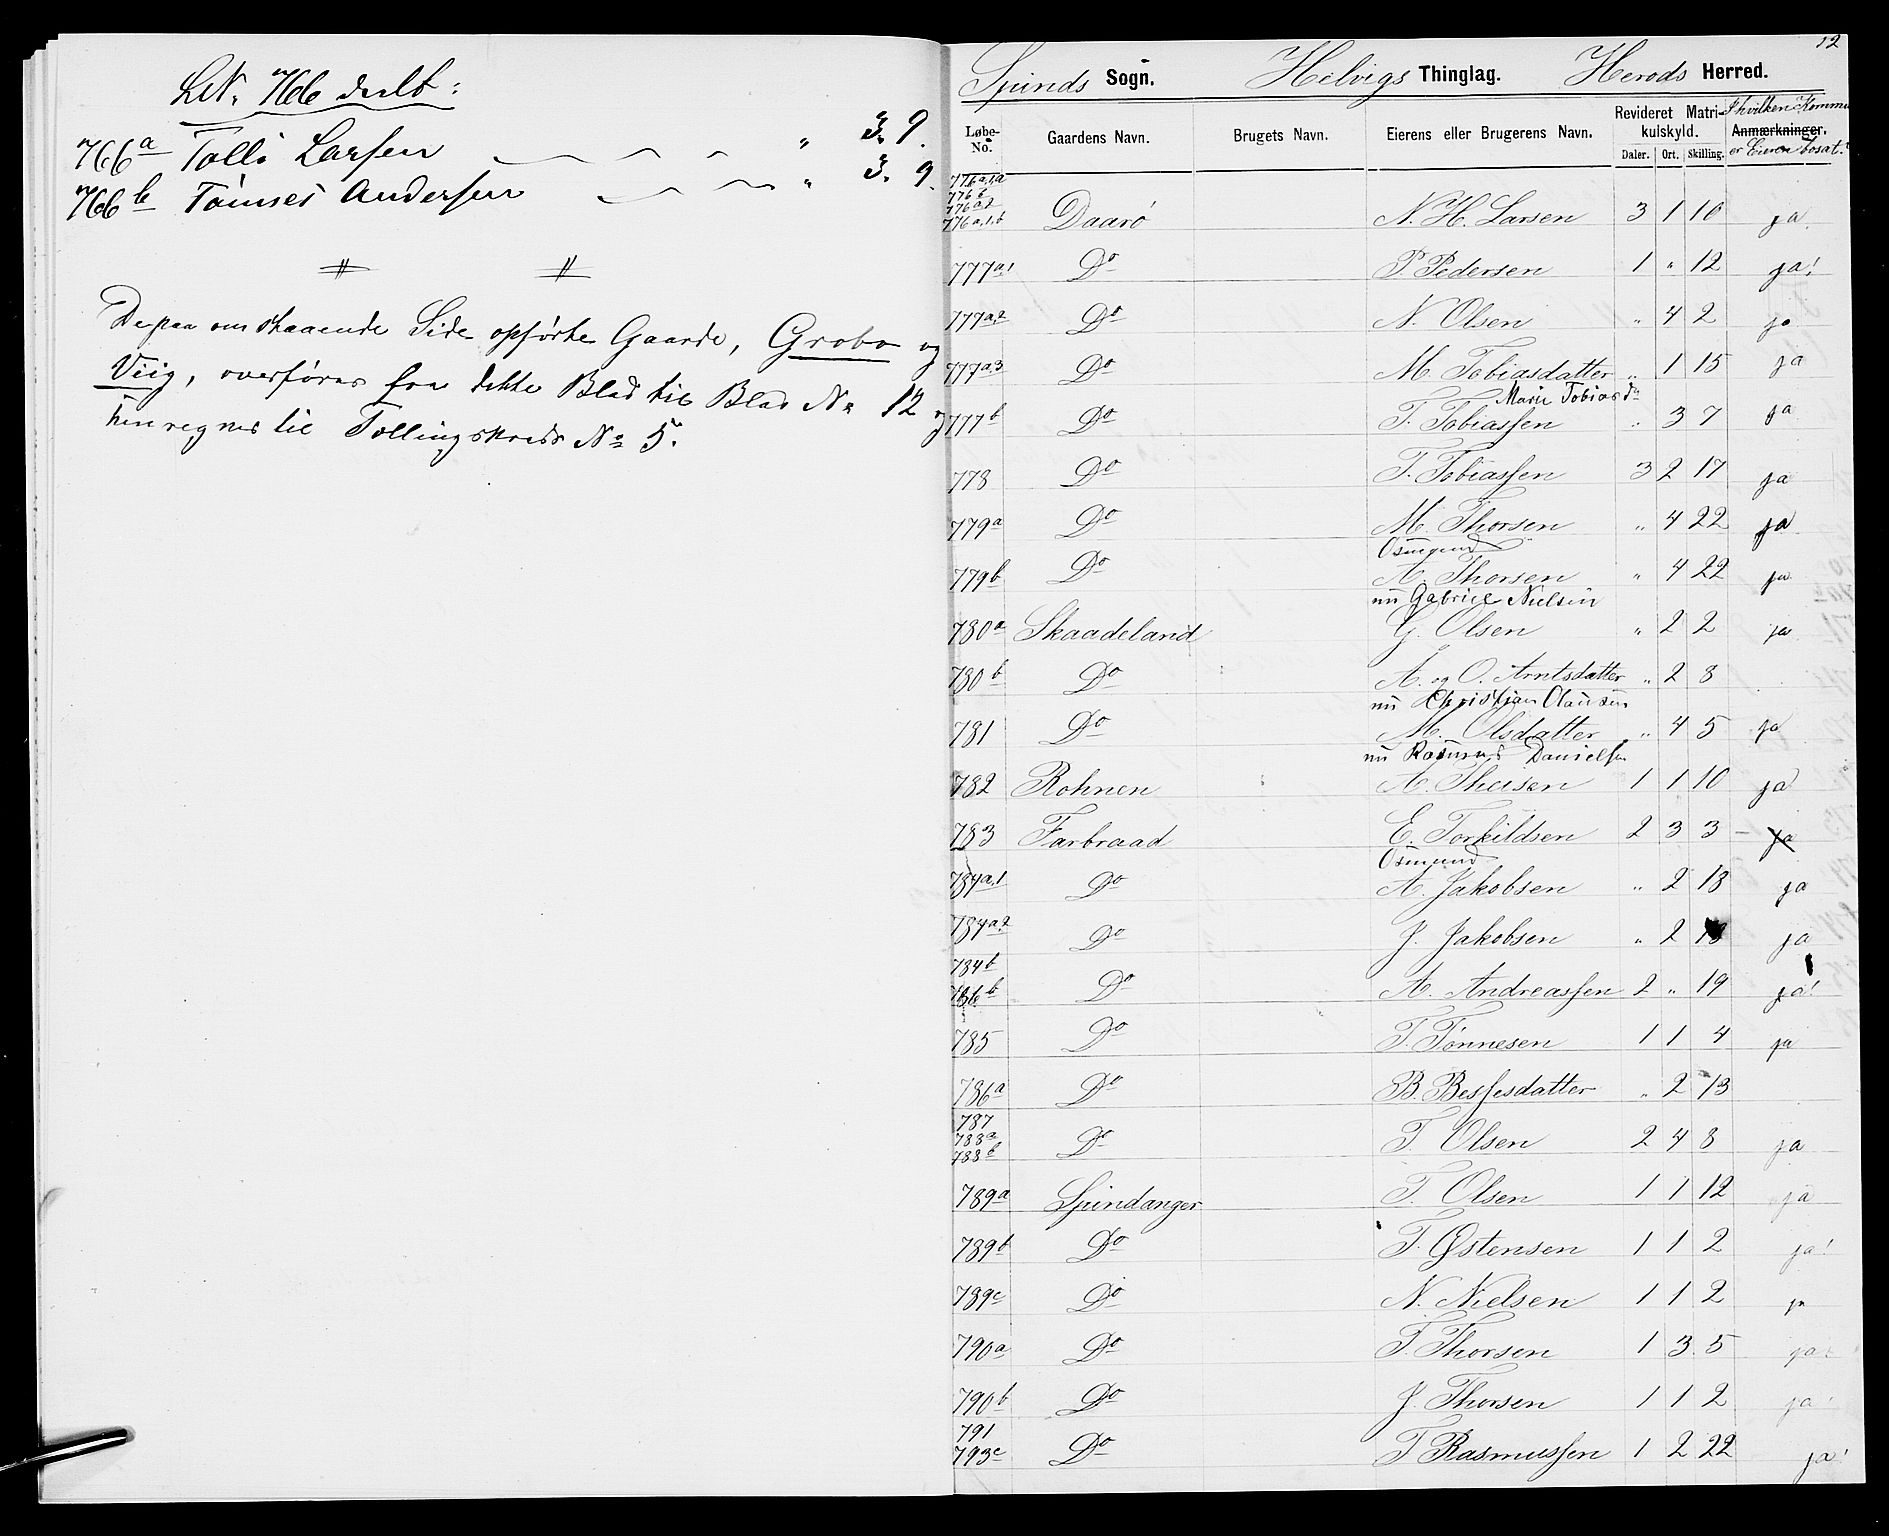 LN. 766 deelt:
766a Tolli Larsen " 3. 9.
766b Tønnes Andersen " 3. 9.
De paa omstaaende Side opførte Gaarde, Grobo og
Viig, overføres fra dette Blad til Blad No 12 og
henregnes til Tællingskreds No 5.
12
Spinds Sogn. Helvigs Thinglag. Herods Herred.
Løbe-No. Gaardens Navn. Brugets Navn. Eierens eller Brugerens Navn. Revideret Matrikulskyld. Daler. Ort. Skilling. Anmærkninger. I hvilken Kommu er Eieren bosat.
776a,1,a
776b
776a,2
776a,1,b Daarø N. H. Larsen 3 1 10 ja.
777a1 Do P. Pedersen 1 " 12 ja!
777a,2 Do N. Olsen " 4 2 ja
777a,3 Do M. Tobiasdatter " 1 15 ja
Marie Tobiasd
777b Do T. Tobiassen " 3 7 ja
778 Do T. Tobiassen 3 2 17 ja
779a Do M. Thorsen " 4 22 ja
Osmund
779b Do A. Thorsen " 4 22 ja
nu Gabriel Nielsen
780a Skaadeland G. Olsen " 2 2 ja
780b Do A. og O. Arntsdatter " 2 8
nu Christian Olausen
781 Do M. Olsdatter " 4 5 ja
nu Rasmus Danielsen
782 Rohnen A. Theisen 1 1 10 ja
783 Farbraad E. Torkildsen 2 3 3 – ja
Osmund
784a,1 Do A. Jakobsen " 2 18 ja
784a,2 Do J. Jakobsen " 2 18 ja
784b
786b Do A. Andreassen 2 " 19 ja!
785 Do T. Tønnesen 1 1 4 ja
786a Do B. Bessesdatter " 2 13
787
788a
788b Do T. Olsen 2 4 8 ja
789a Spindanger T. Olsen 1 1 12 ja
789b Do T. Østensen 1 1 2 ja!
789c Do N. Nielsen 1 1 2 ja
790a Do T. Thorsen 1 3 5 ja
790b Do J. Thorsen 1 1 2 ja
791
793c Do T Rasmussen 1 2 22 ja!